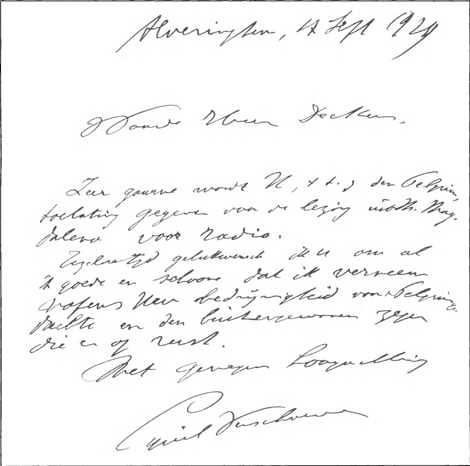 Alveringhem, 12 Sept 1929
Waarde Heer Deckers,
Zeer gaarne wordt U, den Pelgrim,
toelating gegeven voor de lezing v. Mag-
dalena voor radio.
Tegelertijd gelukwensch ik u om al
't goede en schoone dat ik verneem
nopens Uw bedrijvigheid voor Pelgrims-
en den buitengewonen zegen
die er op rust.
Met genegen hoogachting
Cyriel Verschaeve